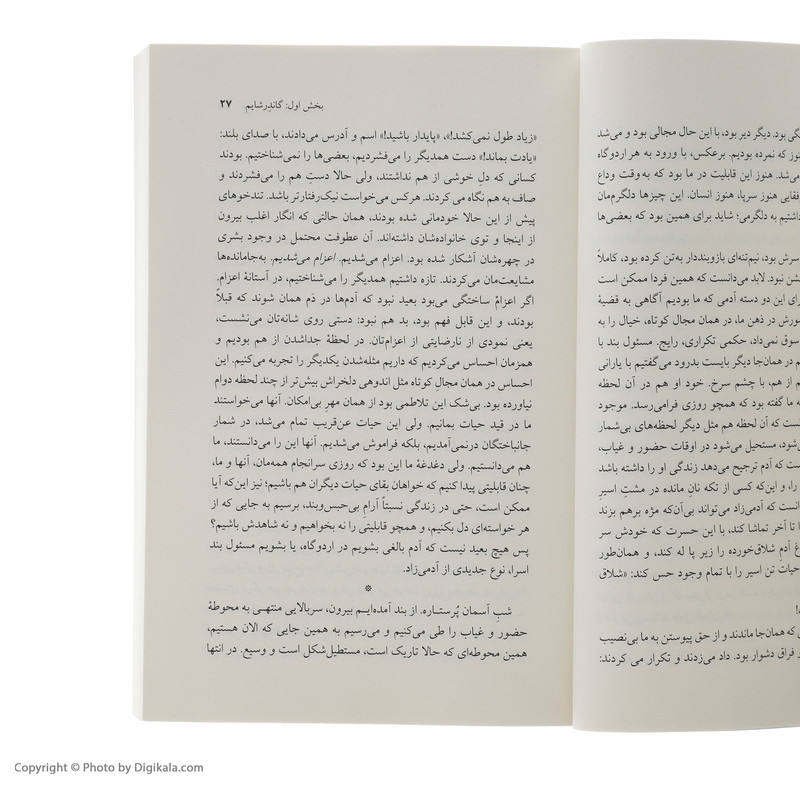 بخش اول: گاندِرشایم ۲۷
«زیاد طول نمی‌کشد!»، «پایدار باشید!» اسم و آدرس می‌دادند، با صدای بلند:
«یادت بماند!» دست همدیگر را می‌فشردیم، بعضی‌ها را نمی‌شناختیم. بودند
کسانی که دلِ خوشی از هم نداشتند، ولی حالا دستِ هم را می‌فشردند و
صاف به هم نگاه می‌کردند. هرکس می‌خواست نیک‌رفتارتر باشد. تندخوهای
پیش از این حالا خودمانی شده بودند، همان حالتی که انگار اغلب بیرون
از اینجا و توی خانواده‌شان داشته‌اند. آن عطوفت محتمل در وجود بشری
در چهره‌شان آشکار شده بود. اعزام می‌شدیم. اعزام می‌شدیم. به‌جامانده‌ها
مشایعت‌مان می‌کردند. تازه داشتیم همدیگر را می‌شناختیم، در آستانهٔ اعزام.
اگر اعزامْ ساختگی می‌بود بعید نبود که آدم‌ها در دَم همان شوند که قبلاً
بودند، و این قابل فهم بود، بد هم نبود: دستی روی شانه‌تان می‌نشست،
یعنی نمودی از نارضایتی از اعزام‌تان. در لحظهٔ جداشدن از هم بودیم و
همزمان احساس می‌کردیم که داریم مثله‌شدن یکدیگر را تجربه می‌کنیم. این
احساس در همان مجالِ کوتاه مثل اندوهی دلخراش بیش‌تر از چند لحظه دوام
نیاورده بود. بی‌شک این تلاطمی بود از همان مهرِ بی‌امکان. آنها می‌خواستند
ما در قید حیات بمانیم. ولی این حیات عن‌قریب تمام می‌شد، در شمار
جانباختگان درنمی‌آمدیم، بلکه فراموش می‌شدیم. آنها این را می‌دانستند، ما
هم می‌دانستیم. ولی دغدغهٔ ما این بود که روزی سرانجام همه‌مان، آنها و ما،
چنان قابلیتی پیدا کنیم که خواهان بقای حیات دیگران هم باشیم؛ نیز این‌که آیا
ممکن است، حتی در زندگی نسبتاً آرامِ بی‌حبس‌وبند، برسیم به جایی که از
هر خواسته‌ای دل بکنیم، و همچو قابلیتی را نه بخواهیم و نه شاهدش باشیم؟
پس هیچ بعید نیست که آدم بالغی بشویم در اردوگاه، یا بشویم مسئول بند
اسرا، نوع جدیدی از آدمی‌زاد.
شبِ آسمان پُرستاره. از بند آمده‌ایم بیرون، سربالایی منتهی به محوطهٔ
حضور و غیاب را طی می‌کنیم و می‌رسیم به همین جایی که الان هستیم،
همین محوطه‌ای که حالا تاریک است، مستطیل‌شکل است و وسیع. در انتها
گی بود. دیگر دیر بود، با این حال مجالی بود و می‌شد
نوز که نمرده بودیم. برعکس، با ورود به هر اردوگاه
می‌شد. هنوز این قابلیت در ما بود که به‌وقت وداع
فقایی هنوز سرپا، هنوز انسان. این چیزها دلگرم‌مان
داشتیم به دلگرمی؛ شاید برای همین بود که بعضی‌ها
سرش بود، نیم‌تنه‌ای بازوبنددار به‌تن کرده بود، کاملاً
شن نبود. لابد می‌دانست که همین فردا ممکن است
رای این دو دسته آدمی که ما بودیم آگاهی به قضیهٔ
سورش در ذهن ما، در همان مجال کوتاه، خیال را به
سوق نمی‌داد، حکمی تکراری، رایج. مسئول بند با
م در همان‌جا دیگر بایست بدرود می‌گفتیم با یارانی
م از هم، با چشم سرخ. خود او هم در آن لحظه
ه ما گفته بود که همچو روزی فرامی‌رسد. موجود
ست که آن لحظه هم مثل دیگر لحظه‌های بی‌شمار
شود، مستحیل می‌شود در اوقات حضور و غیاب،
ست که آدم ترجیح می‌دهد زندگی او را داشته باشد
را، و این‌که کسی از تکه نانِ مانده در مشتِ اسیرِ
است که آدمی‌زاد می‌تواند بی‌آن‌که مژه برهم بزند
تا آخر تماشا کند، با این حسرت که خودش سر
غ آدمِ شلاق‌خورده را زیر پا له کند، و همان‌طور
حیات تن اسیر را با تمام وجود حس کند: «شلاق
!
ی که همان‌جا ماندند و از حق پیوستن به ما بی‌نصیب
ز فراق دشوار بود. داد می‌زدند و تکرار می کردند:
Copyright © Photo by Digikala.com